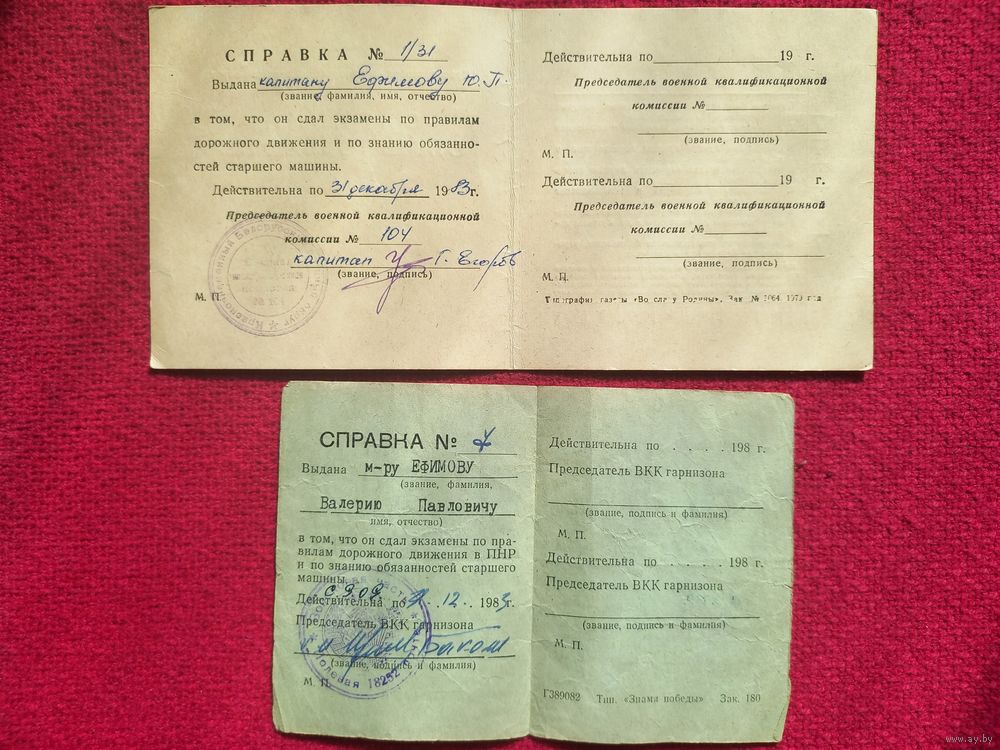 СПРАВКА № 1/31
Выдана капитану Ефимову Ю. П.
(звание, фамилия, имя, отчество)
в том, что он сдал экзамены по правилам
дорожного движения и по знанию обязанно-
стей старшего машины.
Действительна по 31 декабря 1983 г.
Председатель военной квалификационной
комиссии № 104
капитан Г. Егоров
(звание, подпись)
М. П.
Действительна по 19 г.
Председатель военной квалификационной
комиссии №
(звание, подпись)
М. П.
Действительна по 19 г.
Председатель военной квалификационной
комиссии №
(звание, подпись)
М. П.
Типография газеты «Во славу Родины». Зак. № 1979 год
СПРАВКА № 7
Выдана м-ру ЕФИМОВУ
(звание, фамилия,
Валерию Павловичу
имя, отчество)
в том, что он сдал экзамены по пра-
вилам дорожного движения в ПНР
и по знанию обязанностей старшего
машины.
Действительна по 12 . 1983 г.
Председатель ВКК гарнизона
(звание, подпись и фамилия)
М. П.
полевая 18252
Действительна по . . . . 198 г.
Председатель ВКК гарнизона
(звание, подпись и фамилия)
М. П.
Действительна по . . . . 198 г.
Председатель ВКК гарнизона
(звание, подпись и фамилия)
М. П.
Г389082 Тип. «Знамя победы» Зак. 180
www.ay.by